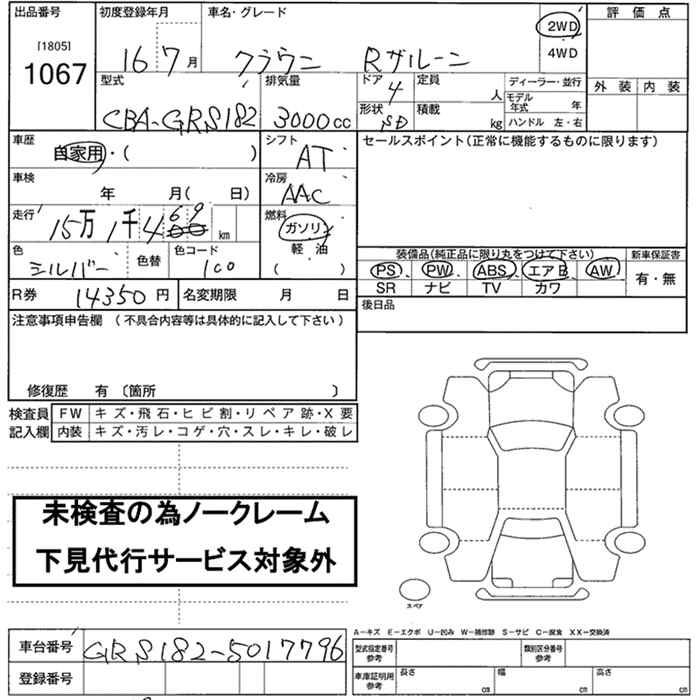 出品番号 初度登録年月 車名・グレード 2WD 評価点
[1805] 4WD
1067 16 7月 クラウン Rサルーン
型式 排気量 ドア 4 定員 人 ディーラー・並行 外装 内装
CBA-GRS182 3000cc 形状 SD 積載 kg モデル年式 年
ハンドル 左・右
車歴 自家用・( ) シフト AT セールスポイント(正常に機能するものに限ります)
車検 年 月( 日) 冷房 AAC
走行 15万1千469 km 燃料 ガソリン
軽・油
( )
色 シルバー 色替 色コード 1C0 装備品(純正品に限り丸をつけて下さい) 新車保証書
PS、PW、ABS、エアB、AW 有・無
SR ナビ TV カワ
R券 14350円 名変期限 月 日 後日品
注意事項申告欄 (不具合内容等は具体的に記入して下さい)
修復歴 有 〔箇所 〕
検査員 FW キズ・飛石・ヒビ割・リペア跡・X要
記入欄 内装 キズ・汚レ・コゲ・穴・スレ・キレ・破レ
未検査の為ノークレーム
下見代行サービス対象外
スペア
A-キズ E-エクボ U-凹み W-補修跡 S-サビ C-腐食 XX-交換済
車台番号 GRS182-5017796 型式指定番号 参考 類別区分番号 参考
登録番号 車庫証明用 参考 長さ cm 幅 cm 高さ cm